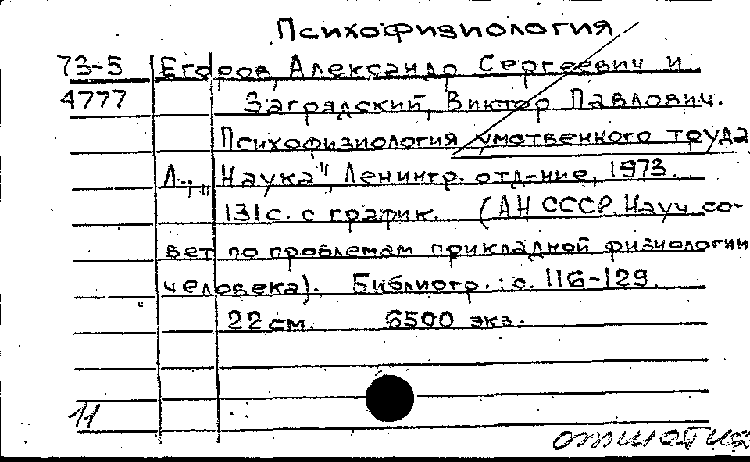 Психофизиология
73-5 Егоров, Александр Сергеевич и
4777 Загрядский, Виктор Павлович.
Психофизиология умственного труда
Л., "Наука", Ленингр. отд-ние, 1973.
131 с. с график. (АН СССР. Науч. со-
вет по проблемам прикладной физиологии
человека). Библиогр.: с. 116-129.
22 см. 6500 экз.
11